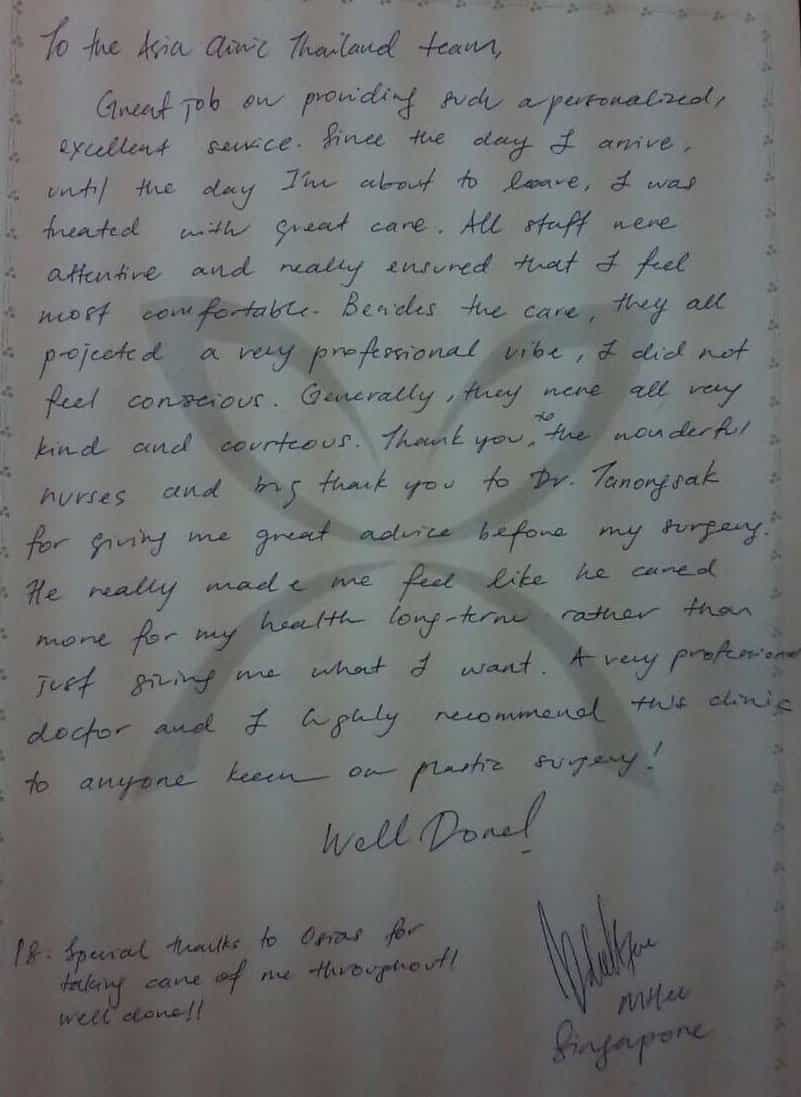 To the Asia Clinic Thailand team,
Great job on providing such a personalized,
excellent service. Since the day I arrive,
until the day I'm about to leave, I was
treated with great care. All staff were
attentive and really ensured that I feel
most comfortable. Besides the care, they all
projected a very professional vibe, I did not
feel conscious. Generally, they were all very
kind and courteous. Thank you, to the wonderful
nurses and big thank you to Dr. Tanongsak
for giving me great advice before my surgery.
He really made me feel like he cared
more for my health long-term rather than
just giving me what I want. A very professional
doctor and I highly recommend this clinic
to anyone keen on plastic surgery!
Well Done!
P.S. Special thanks to Osias for
taking care of me throughout!
well done!!
Singapore